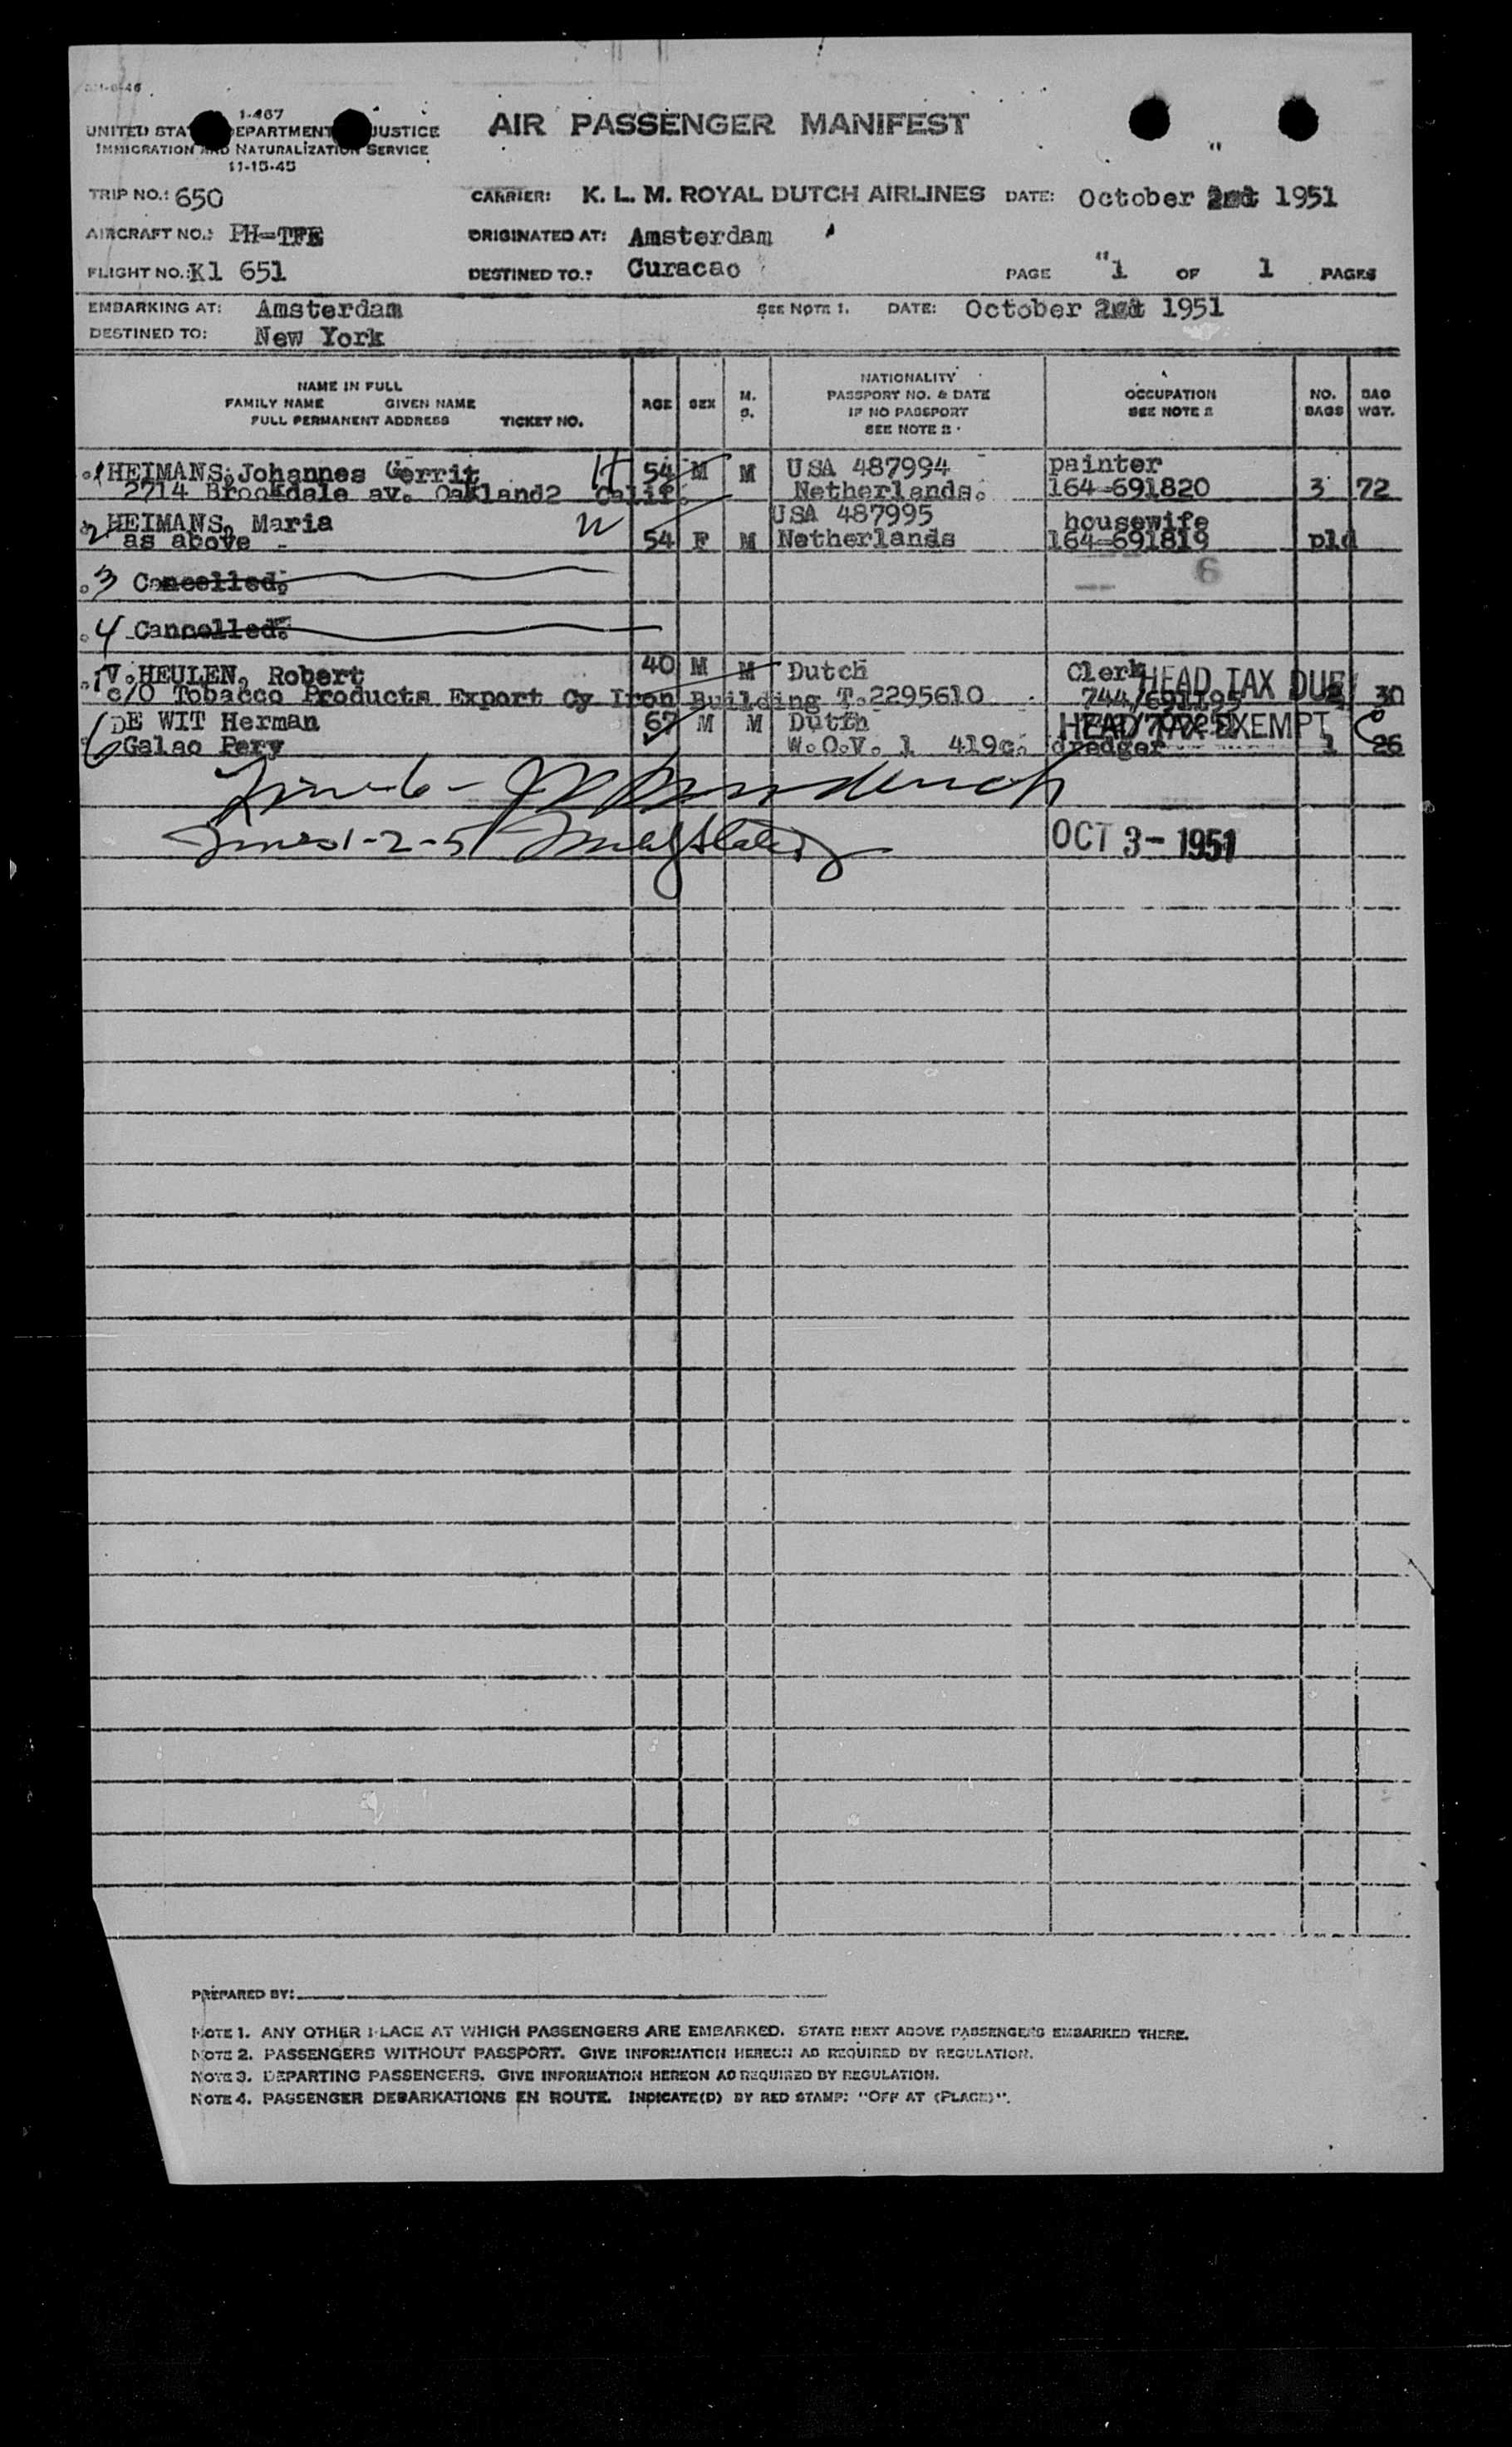 1-467
UNITED STA EPARTMENT JUSTICE
IMMIGRATION AND NATURALIZATION SERVICE
11-15-45
AIR PASSENGER MANIFEST
TRIP NO.: 650 CARRIER: K. L. M. ROYAL DUTCH AIRLINES DATE: October 2nd 1951
AIRCRAFT NO.: PH-TFE ORIGINATED AT: Amsterdam
FLIGHT NO.: Kl 651 DESTINED TO.: Curacao PAGE "1 OF 1 PAGES
EMBARKING AT: Amsterdam SEE NOTE 1. DATE: October 2nd 1951
DESTINED TO: New York
NAME IN FULL
FAMILY NAME GIVEN NAME
FULL PERMANENT ADDRESS TICKET NO.
AGE SEX M. S.
NATIONALITY
PASSPORT NO. & DATE
IF NO PASSPORT
SEE NOTE 2
OCCUPATION
SEE NOTE 2
NO. BAGS
BAG WGT.
1 HEIMANS, Johannes Gerrit 54 M M USA 487994 painter
2714 Brookdale av. Oakland2 Calif. Netherlands. 164-691820 3 72
2 HEIMANS, Maria USA 487995 housewife
as above - 54 F M Netherlands 164-691819 pld
3 Cancelled. 6
4 Cancelled.
V. HEULEN, Robert 40 M M Dutch Clerk HEAD TAX DUE
c/O Tobacco Products Export Cy Iron Building T.2295610 744/691195 30
6 DE WIT Herman 67 M M Dutch HEAD TAX EXEMPT
Galao Pery W.O.V. 1 419c. dredger 1 26
OCT 3 - 1951
PREPARED BY:
NOTE 1. ANY OTHER PLACE AT WHICH PASSENGERS ARE EMBARKED. STATE NEXT ABOVE PASSENGERS EMBARKED THERE.
NOTE 2. PASSENGERS WITHOUT PASSPORT. GIVE INFORMATION HEREON AS REQUIRED BY REGULATION.
NOTE 3. DEPARTING PASSENGERS. GIVE INFORMATION HEREON AS REQUIRED BY REGULATION.
NOTE 4. PASSENGER DEBARKATIONS EN ROUTE. INDICATE(D) BY RED STAMP: "OFF AT (PLACE)".